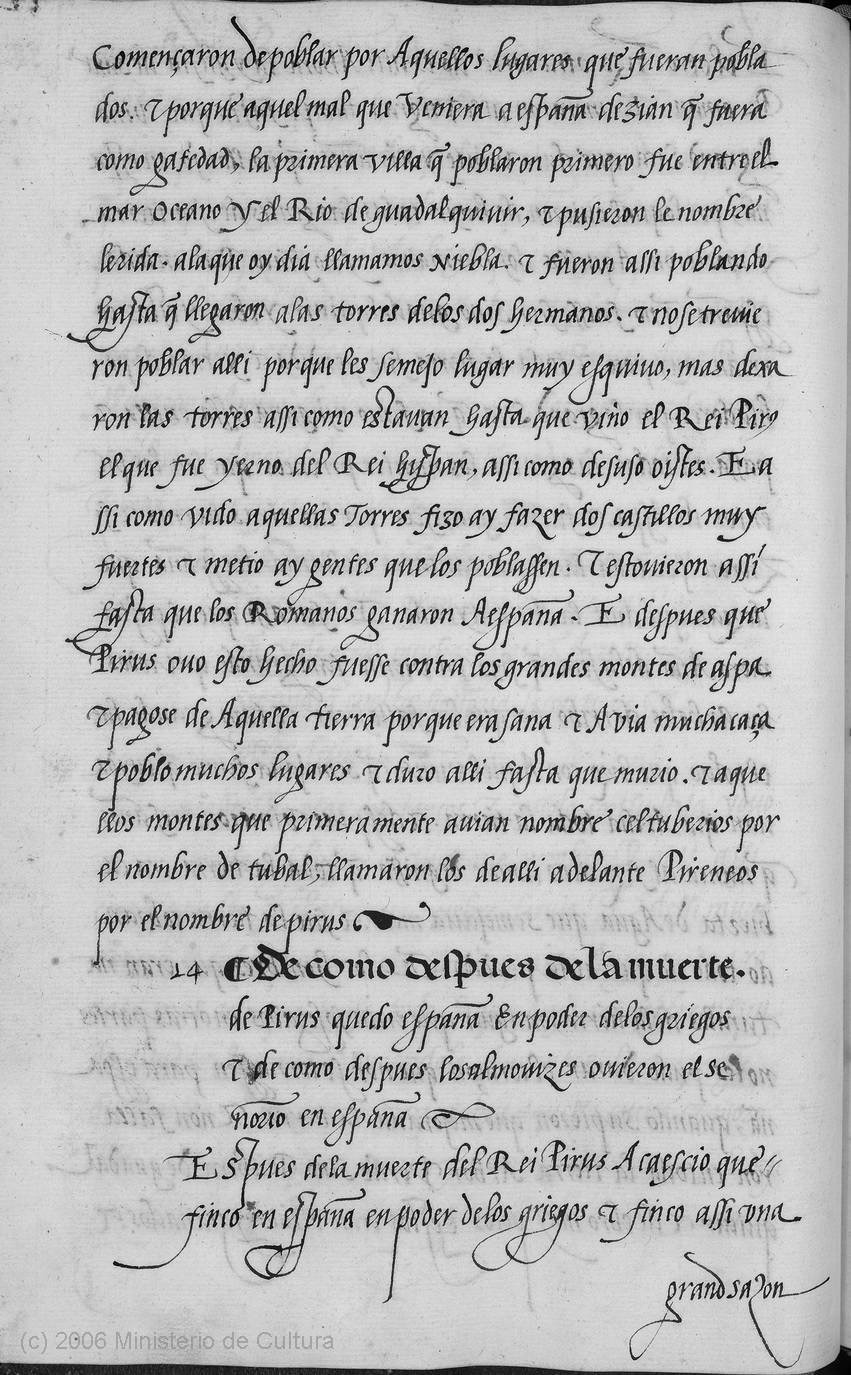 Començaron de poblar por Aquellos lugares que fueran pobla
dos. τ porque aquel mal que Veniera a españa dezian q̃ fuera
como gafedad, la primera villa q̃ poblaron primero fue entre el
mar Oceano y el Rio de guadalquiuir, τ pusieron le nombre
lerida. ala que oy dia llamamos Niebla. τ fueron assi poblando
hasta q̃ llegaron alas torres delos dos hermanos. τ no se treuie
ron poblar alli porque les semejo lugar muy esquiuo, mas dexa
ron las torres assi como estauan hasta que vino el Rei Pirꝯ
el que fue yerno del Rei hispan, assi como desuso oistes. E a
ssi como vido aquellas Torres fizo ay fazer dos castillos muy
fuertes τ metio ay gentes que los poblassen. τ estouieron assi
fasta que los Romanos ganaron A españa. E despues que
Pirus ouo esto hecho fuesse contra los grandes montes de aspa
τ pagose de Aquella tierra porque era sana τ Auia mucha caça
τ poblo muchos lugares τ duro alli fasta que murio. τ aque
llos montes que primeramente auian nombre celtuberios por
el nombre de tubal, llamaron los de alli adelante Pireneos
por el nombre de pirus
14 ¶ De como despues dela muerte.
de Pirus quedo españa En poder delos griegos
τ de como despues los almouizes ouieron el se
ñorio en españa
Espues dela muerte del Rei Pirus Acaescio que
finco en españa en poder delos griegos τ finco assi vna
grand sazon
(c) 2006 Ministerio de Cultura